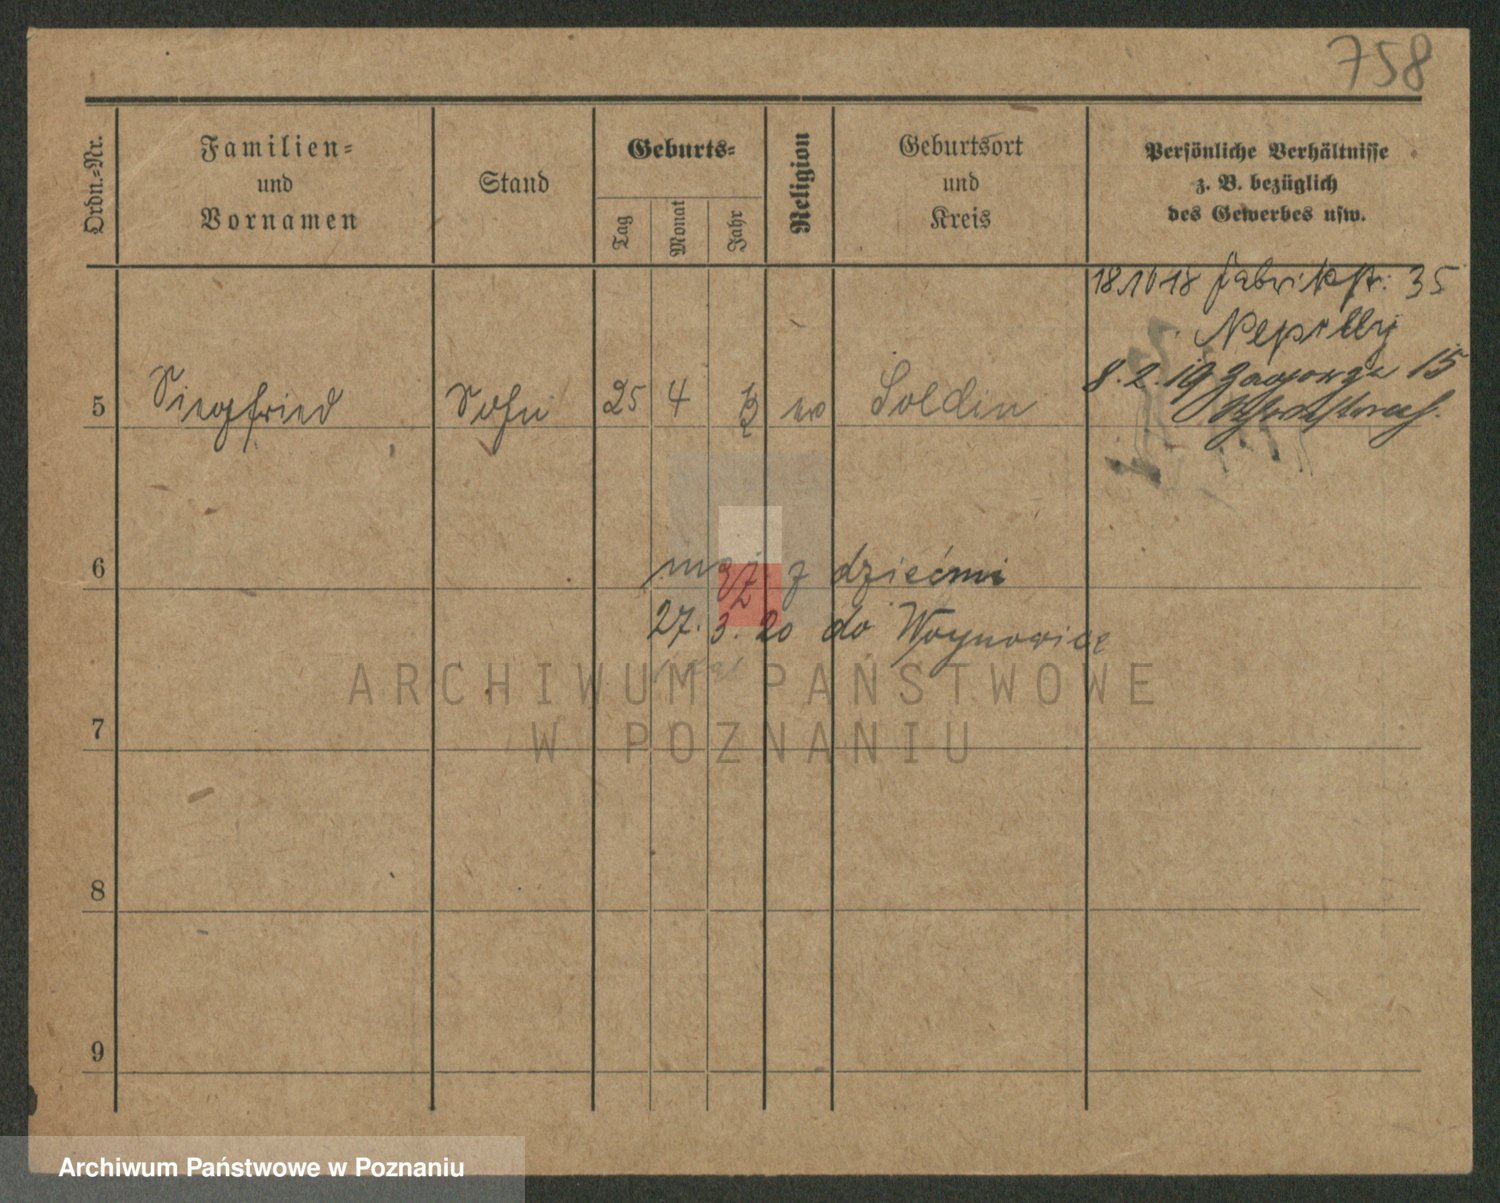 758
Ordn.-Nr.
Familien-
und
Vornamen
Stand
Geburts-
Tag
Monat
Jahr
Religion
Geburtsort
und
Kreis
Persönliche Verhältnisse
z. B. bezüglich
des Gewerbes usw.
18 10 18 Fabrikstr. 35
8.2.19 15
5 Siegfried Sohn 25 4 ev Soldin
6
mąż z dziećmi
27. 3. 20 do Woynowice
7
8
9
ARCHIWUM PAŃSTWOWE
W POZNANIU
Archiwum Państwowe w Poznaniu